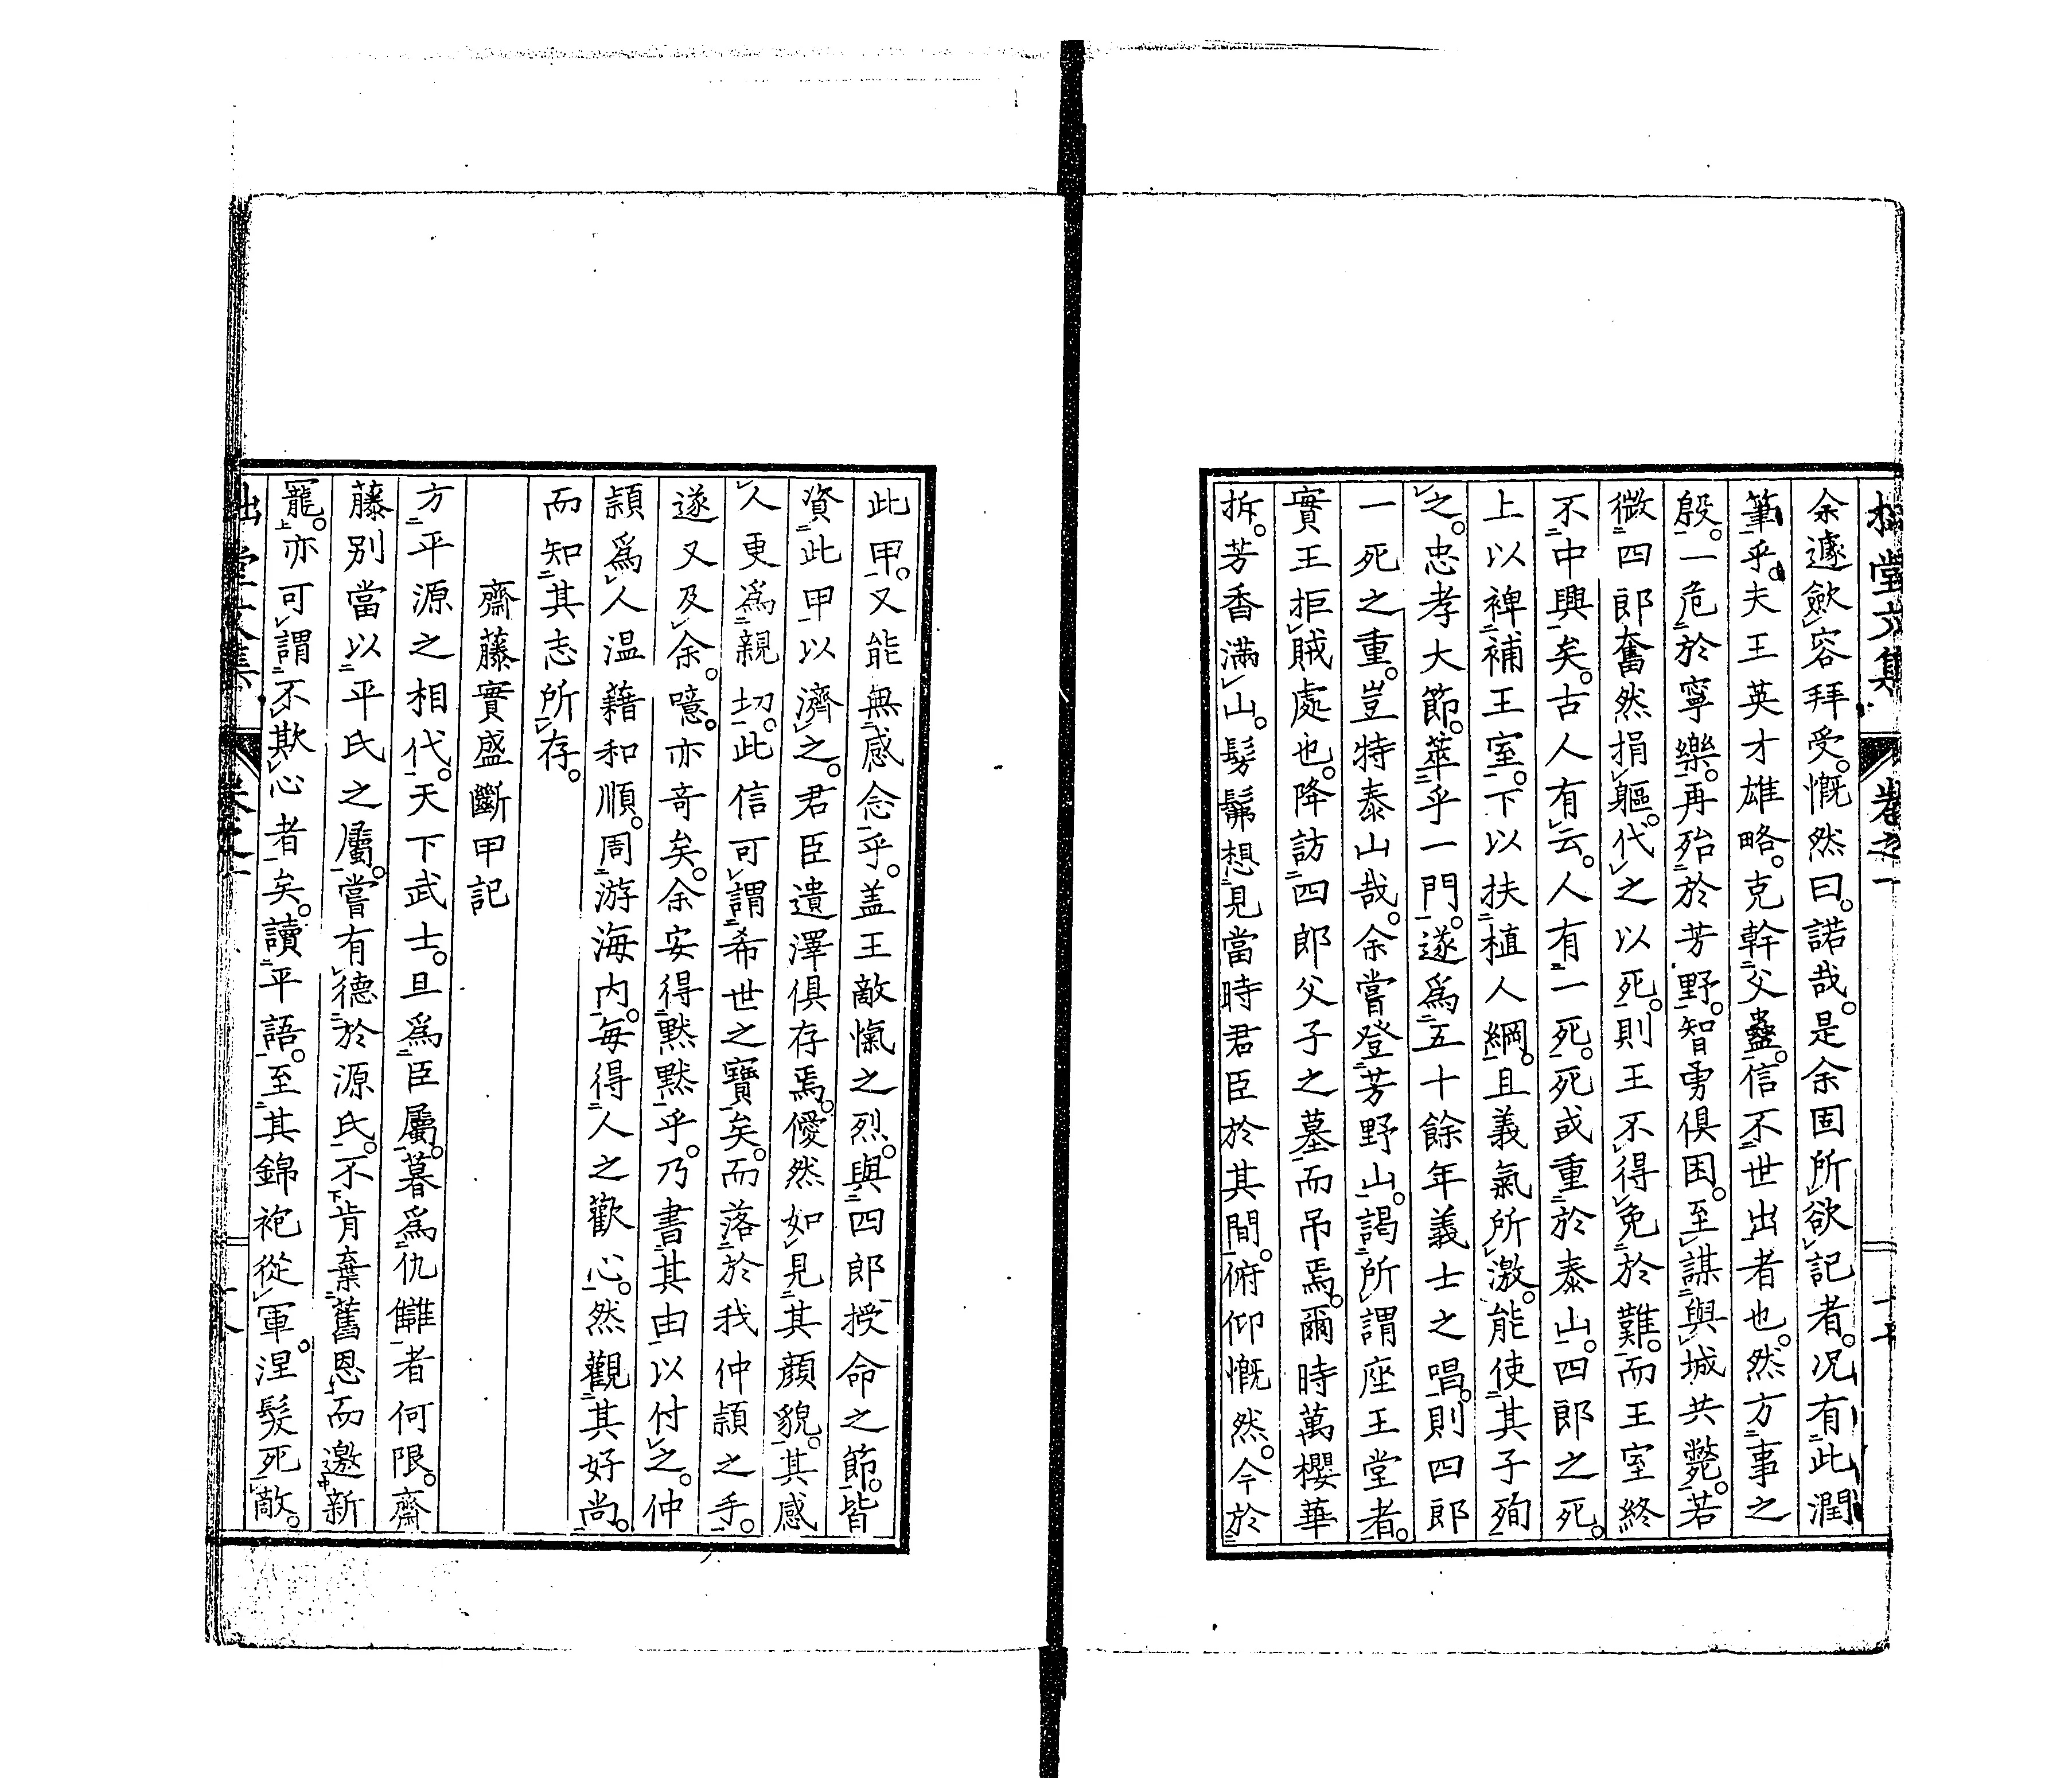 拙堂文集 卷之一 十五
余遽斂容拜受。慨然曰。諾哉。是余固所欲記者。况有此潤
筆乎。夫王英才雄略。克幹父蠱。信不世出者也。然方事之
殷。一危於寧樂。再殆於芳野。智勇俱困。至謀與城共斃。若
微四郎奮然捐軀。代之以死。則王不得免於難。而王室終
不中興矣。古人有云。人有一死。死或重於泰山。四郎之死。
上以裨補王室。下以扶植人綱。且義氣所激。能使其子殉
之。忠孝大節。萃乎一門。遂為五十餘年義士之唱。則四郎
一死之重。豈特泰山哉。余嘗登芳野山。謁所謂座王堂者。
實王拒賊處也。降訪四郎父子之墓。而吊焉。爾時萬櫻華
拆。芳香滿山。髣髴想見當時君臣於其間。俯仰慨然。今於
此甲。又能無感念乎。盖王敵愾之烈。與四郎授命之節。皆
資此甲以濟之。君臣遺澤俱存焉。僾然如見其顏貌。其感
人更爲親切。此信可謂希世之寶矣。而落於我仲穎之手。
遂又及余。噫。亦竒矣。余安得黙黙乎。乃書其由以付之。仲
穎爲人温藉和順。周游海内。每得人之歡心。然觀其好尚。
而知其志所存。
齋藤實盛斷甲記
方平源之相代。天下武士。旦爲臣屬。暮爲仇讎者何限。齋
藤別當以平氏之屬。嘗有德於源氏。不肯棄舊恩而邀新
寵。亦可謂不欺心者矣。讀平語。至其錦袍從軍。涅髮死敵。
拙堂文集 卷之一